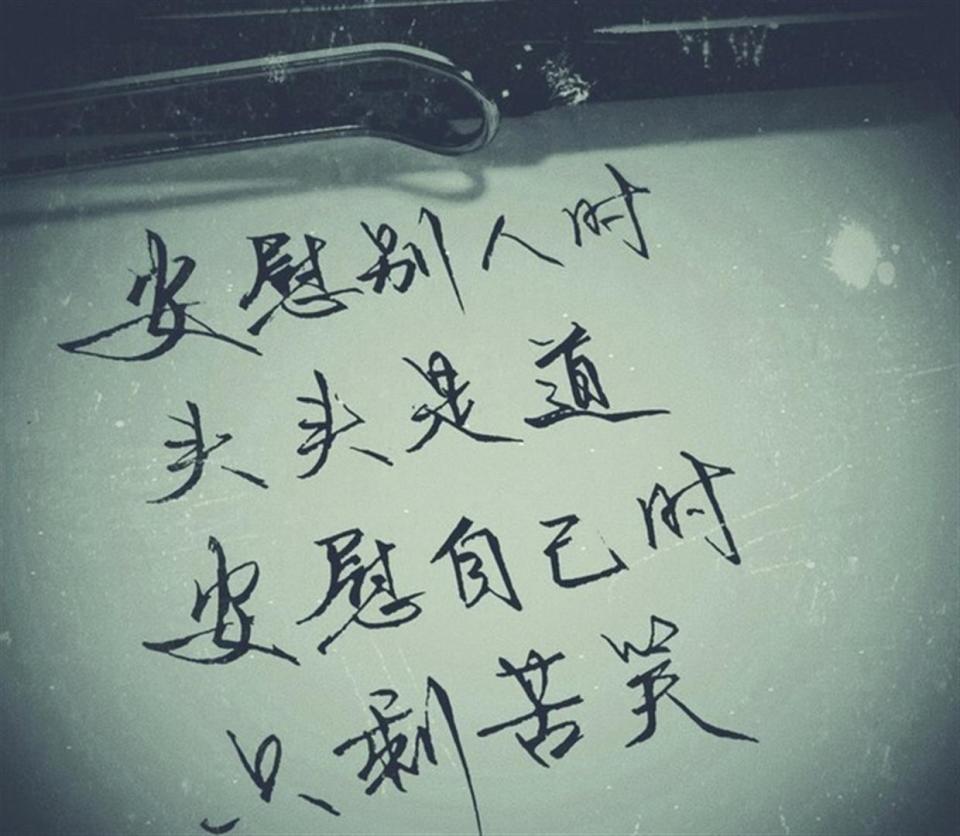 安慰别人时
头头是道
安慰自己时
只剩苦笑